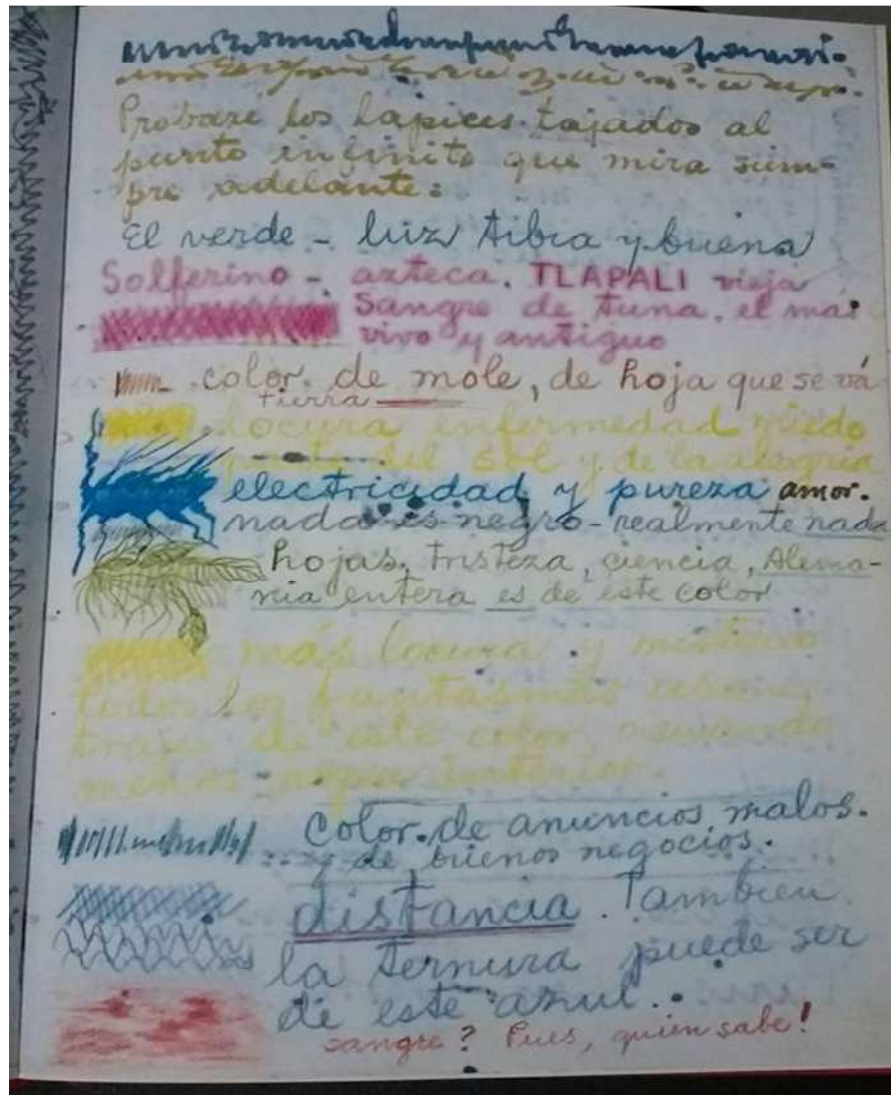 Probaré los lapices tajados al
punto infinito que mira siem-
pre adelante:
El verde – luz tibia y buena
Solferino – azteca. TLAPALI vieja
Sangre de tuna, el mas
vivo y antiguo
color de mole, de hoja que se vá
tierra
locura enfermedad miedo
parte del sol y de la alegria
electricidad y pureza amor.
nada es negro – realmente nada
hojas, tristeza, ciencia, Alema-
nia entera es de este color
más locura y misterio
todos los fantasmas usan
trajes de este color,
menos ropa interior.
color de anuncios malos.
y de buenos negocios.
distancia. Tambien
la ternura puede ser
de este azul.
sangre? Pues, quien sabe!